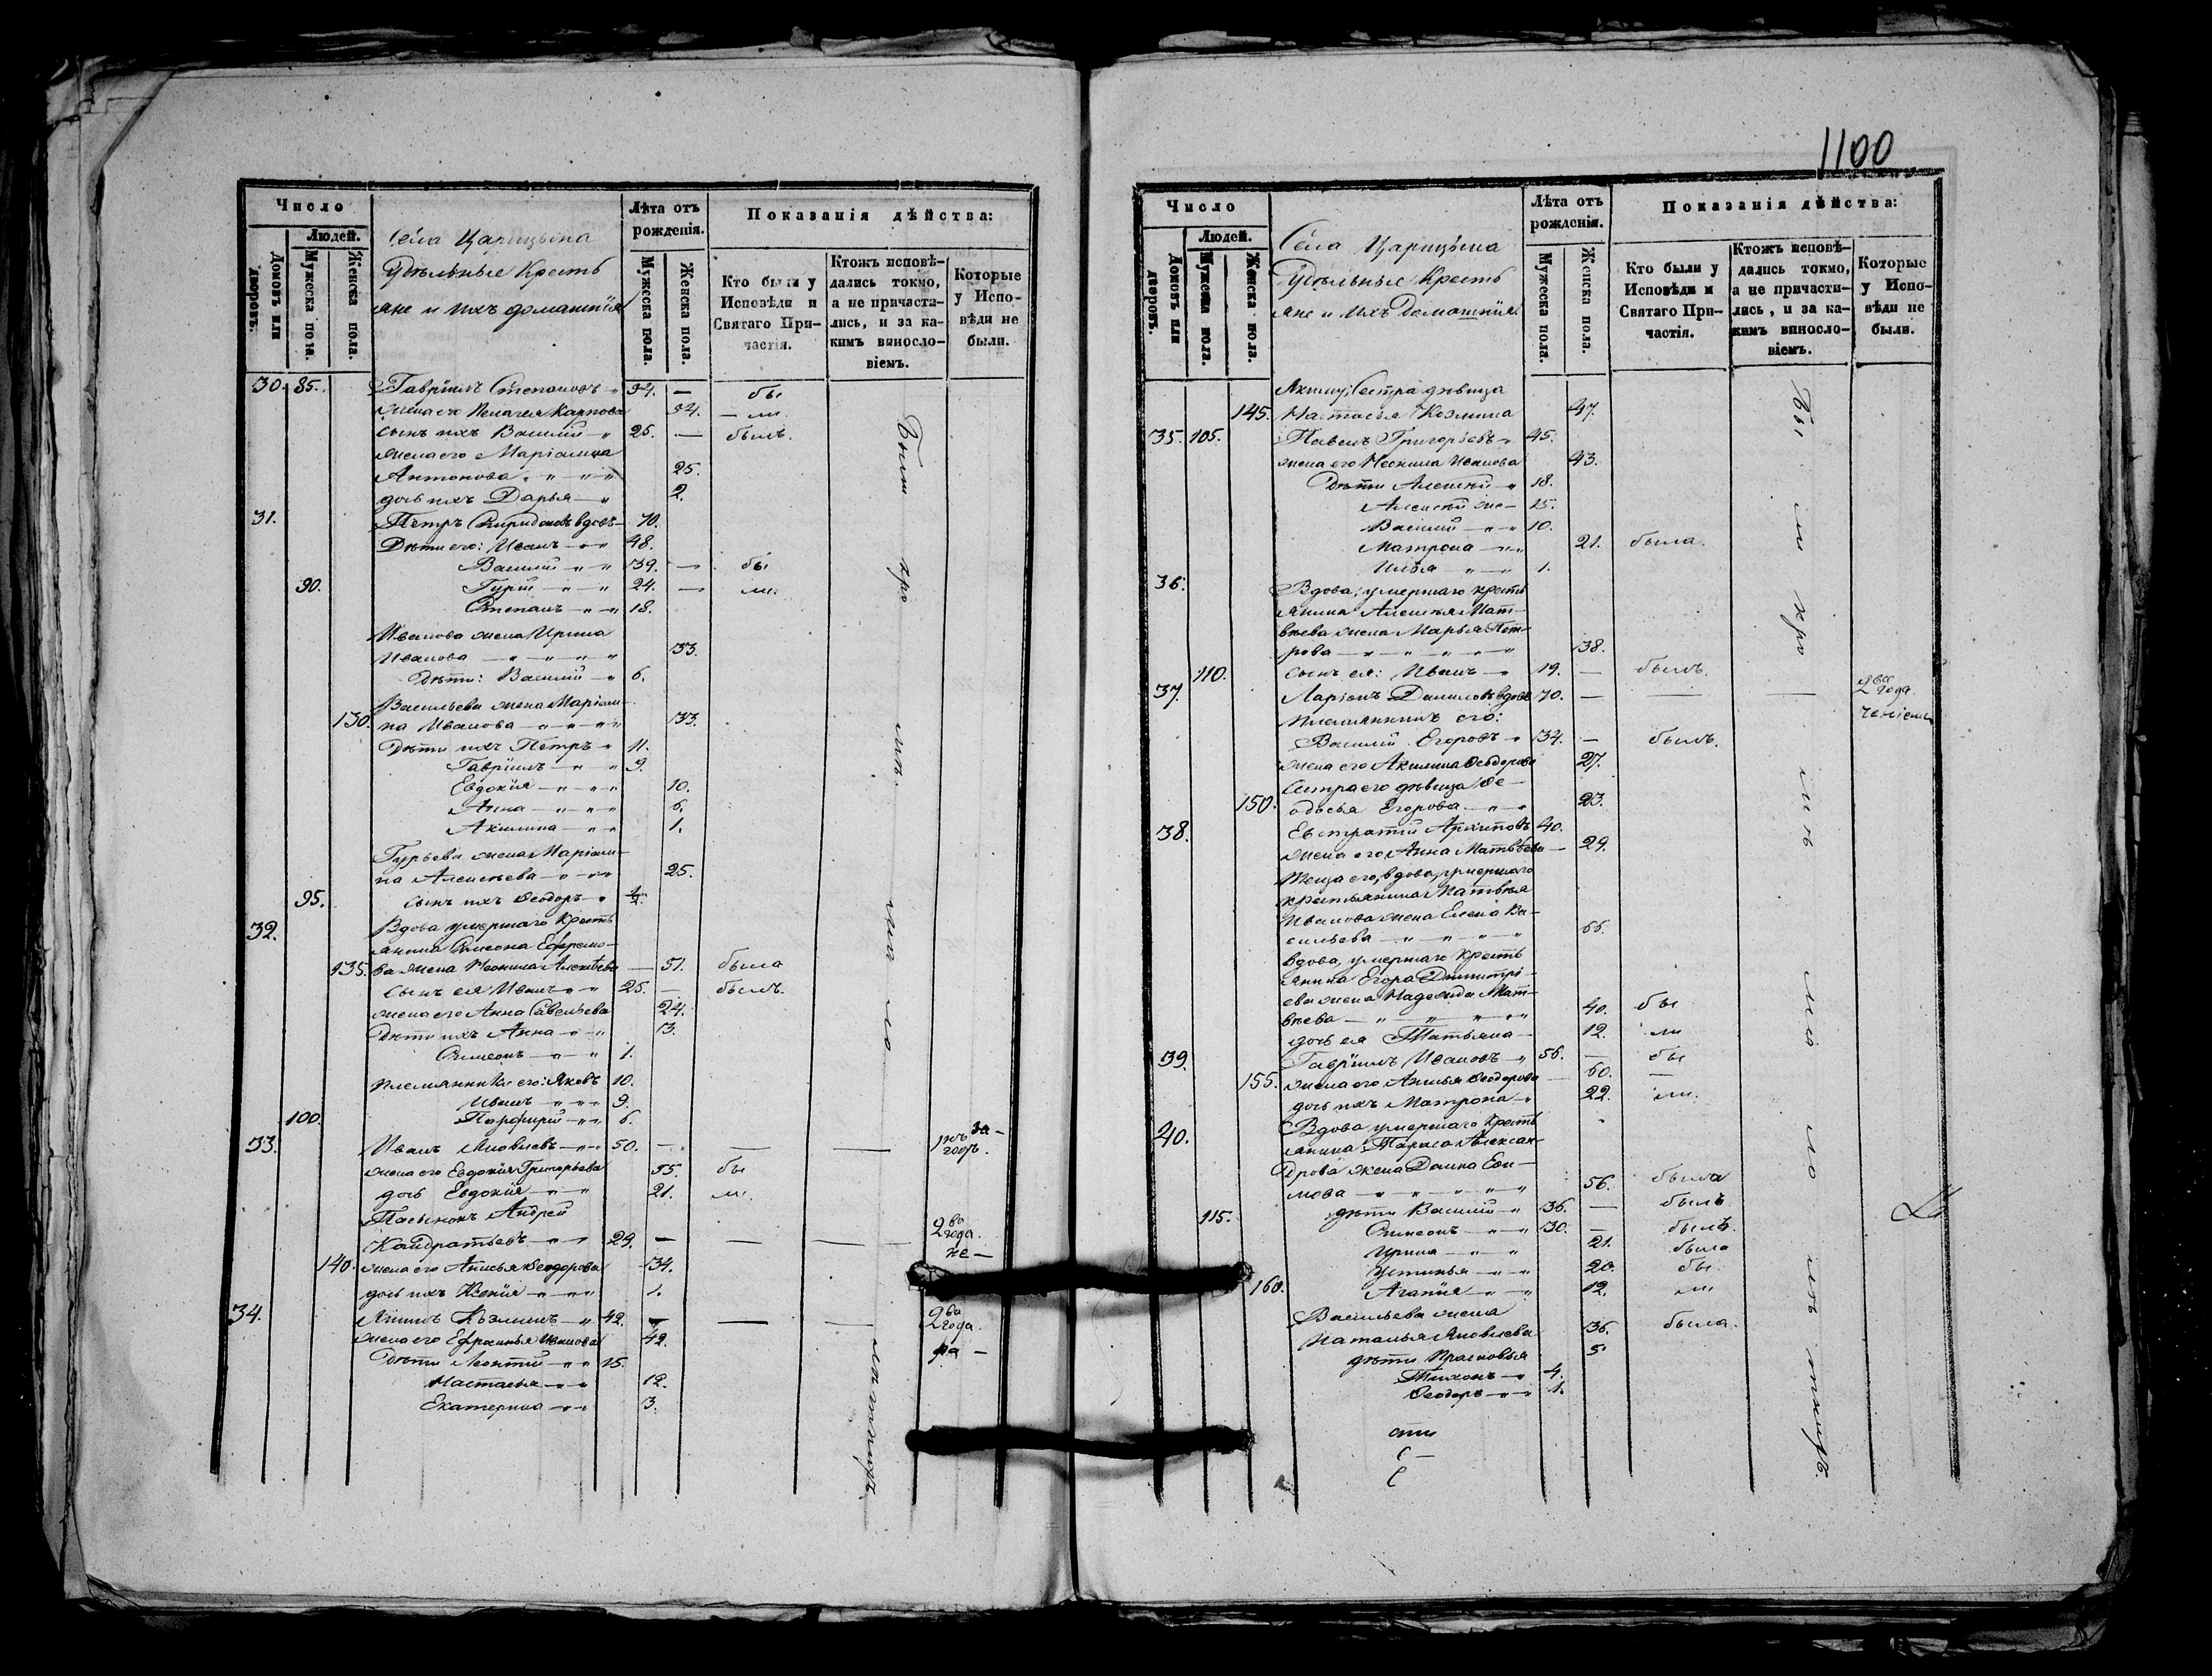 Число
Людей.
Домовъ или дворовъ.
Мужеска пола.
Женска пола.
Села Царицына
Удѣльные Кресть
яне и ихъ домашнія
Лѣта отъ рожденія.
Мужеска пола.
Женска пола.
Показанія дѣйства:
Кто были у Исповѣди и Святаго При-частія.
Ктожъ исповѣ-дались токмо, а не причасти-лись, и за ка-кимъ винослo-віемъ.
Которые у Испо-вѣди не были.
30. 85. Гавріилъ Степановъ 54. — бы
жена его Пелагея Карпова 54. — ли.
сынъ ихъ Василій 25. — былъ.
жена его Маріамна
Антонова 25.
дочь ихъ Дарья 2.
31. Петръ Спиридоновъ вдовъ 70.
Дѣти его: Иванъ 48.
Василій 39. — бы
90. Гурій 24. — ли.
Степанъ 18.
Иванова жена Ирина
Иванова 53.
Дѣти: Василій 6.
Васильева жена Маріам-
130. на Иванова 33.
Дѣти ихъ Петръ 11.
Гавріилъ 9.
Евдокія 10.
Анна 6.
Акилина 1.
Гурьева жена Маріам-
на Алексѣева 25.
95. сынъ ихъ Ѳеодоръ ½.
32. Вдова умершаго кресть
янина Симеона Ефремо-
135. ва жена Неонила Алексѣева — 51. была
сынъ ея Иванъ 25. — былъ.
жена его Анна Савельева 24.
Дѣти ихъ Анна 3.
Симеонъ 1.
племянники его: Яковъ 10.
Иванъ 9.
100. Порфирій 6.
33. Иванъ Яковлевъ 50. — — — 1нъ годъ. за-
жена его Евдокія Григорьева 55. бы
дочь Евдокія 21. ли.
Пасынокъ Андрей
Кондратьевъ 29. — — — 2ва года. не-
140. жена его Анисья Ѳеодорова 34.
дочь ихъ Ксенія 1.
34. Якимъ Козминъ 42. — — — 2ва года. ра-
жена его Ефросинья Иванова 42.
Дѣти Леонтій 15.
Настасья 12.
Екатерина 3.
1100
Число
Людей.
Домовъ или дворовъ.
Мужеска пола.
Женска пола.
Села Царицына
Удѣльные Кресть
яне и ихъ Домашнія.
Лѣта отъ рожденія.
Мужеска пола.
Женска пола.
Показанія дѣйства:
Кто были у Исповѣди и Святаго При-частія.
Ктожъ исповѣ-дались токмо, а не причасти-лись, и за ка-кимъ винослo-віемъ.
Которые у Испо-вѣди не были.
Якиму, Сестра дѣвица
145. Настасья Козмина 47.
35. 105. Павелъ Григорьевъ 45.
жена его Неонила Иванова 43.
Дѣти Алексѣй 18.
Алексѣй же 15.
Василій 10.
Матрона 21. была.
Илья 1.
36. Вдова, умершаго кресть
янина Алексѣя Мат-
вѣева жена Марья Пет-
рова 38.
110. сынъ ея: Иванъ 19. — былъ.
37. Ларіонъ Даниловъ вдовъ 70. — — — 2ва года. ченіемъ
племянникъ его:
Василій Егоровъ 34. — былъ.
жена его Акилина Ѳеодорова 27.
Сестра его дѣвица Ѳе-
150. одосья Егорова 23.
38. Евстратій Архиповъ 40.
жена его Анна Матвѣева 29.
Теща его, вдова, умершаго
крестьянина Матвѣя
Иванова жена Елена Ва-
сильева 66.
вдова, умершаго кресть
янина Егора Димитрі-
ева жена Надежда Мат-
вѣева 40. бы
дочь ея Татьяна 12. ли
39. Гавріилъ Ивановъ 56. — бы
155. жена его Анисья Ѳеодорова 60. —
дочь ихъ Матрона 22. ли.
40. Вдова умершаго кресть
янина Тараса Алексан-
дрова жена Домна Еѳи-
мова 56. была
115. дѣти Василій 36. — былъ
Симеонъ 30. — былъ.
Ирина 21. была
Устинья 20. бы
160. Агапія 12. ли
Васильева жена
Наталья Яковлева 36. была.
дѣти Прасковья 5.
Тихонъ 4.
Ѳеодоръ 1.